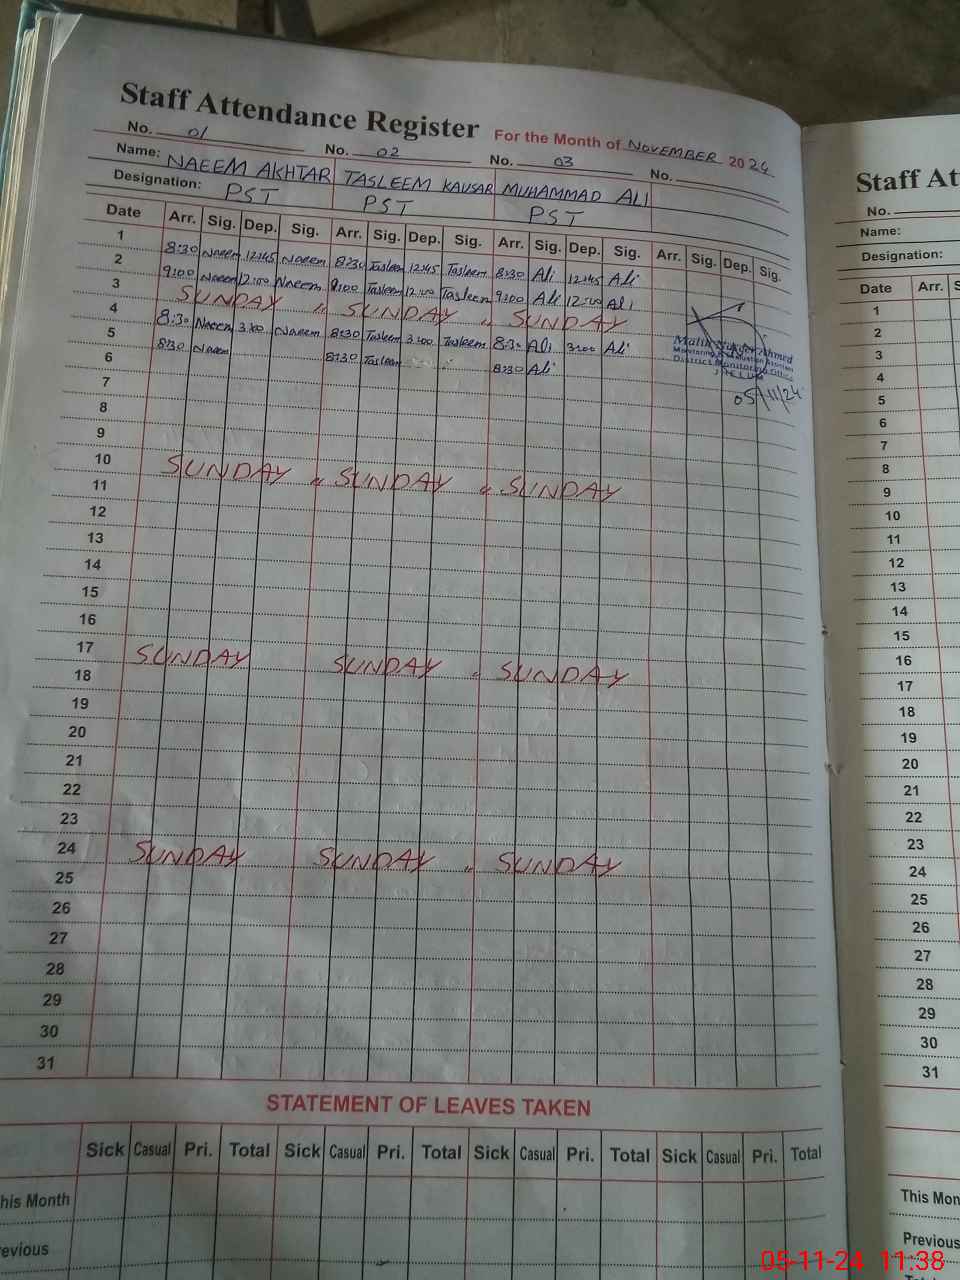 Staff Attendance Register For the Month of NOVEMBER 2024
No. 01 No. 02 No. 03 No.
Name: NAEEM AKHTAR TASLEEM KAUSAR MUHAMMAD ALI
Designation: PST PST PST
Date Arr. Sig. Dep. Sig. Arr. Sig. Dep. Sig. Arr. Sig. Dep. Sig. Arr. Sig. Dep. Sig.
1 8:30 Naeem 12:45 Naeem 8:30 Tasleem 12:45 Tasleem 8:30 Ali 12:45 Ali
2 9:00 Naeem 12:00 Naeem 9:00 Tasleem 12:00 Tasleem 9:00 Ali 12:00 Ali
3 SUNDAY " SUNDAY " SUNDAY
4 8:30 Naeem 3:00 Naeem 8:30 Tasleem 3:00 Tasleem 8:30 Ali 3:00 Ali
5 8:30 Naeem 8:30 Tasleem 8:30 Ali
Malik Ahmed
Monitoring
District Monitoring Office
JHELUM
05/11/24
6
7
8
9
10 SUNDAY " SUNDAY " SUNDAY
11
12
13
14
15
16
17 SUNDAY SUNDAY " SUNDAY
18
19
20
21
22
23
24 SUNDAY SUNDAY " SUNDAY
25
26
27
28
29
30
31
STATEMENT OF LEAVES TAKEN
Sick Casual Pri. Total Sick Casual Pri. Total Sick Casual Pri. Total Sick Casual Pri. Total
his Month
evious
Staff At
No.
Name:
Designation:
Date Arr. S
1
2
3
4
5
6
7
8
9
10
11
12
13
14
15
16
17
18
19
20
21
22
23
24
25
26
27
28
29
30
31
This Mon
Previous
05-11-24 11:38